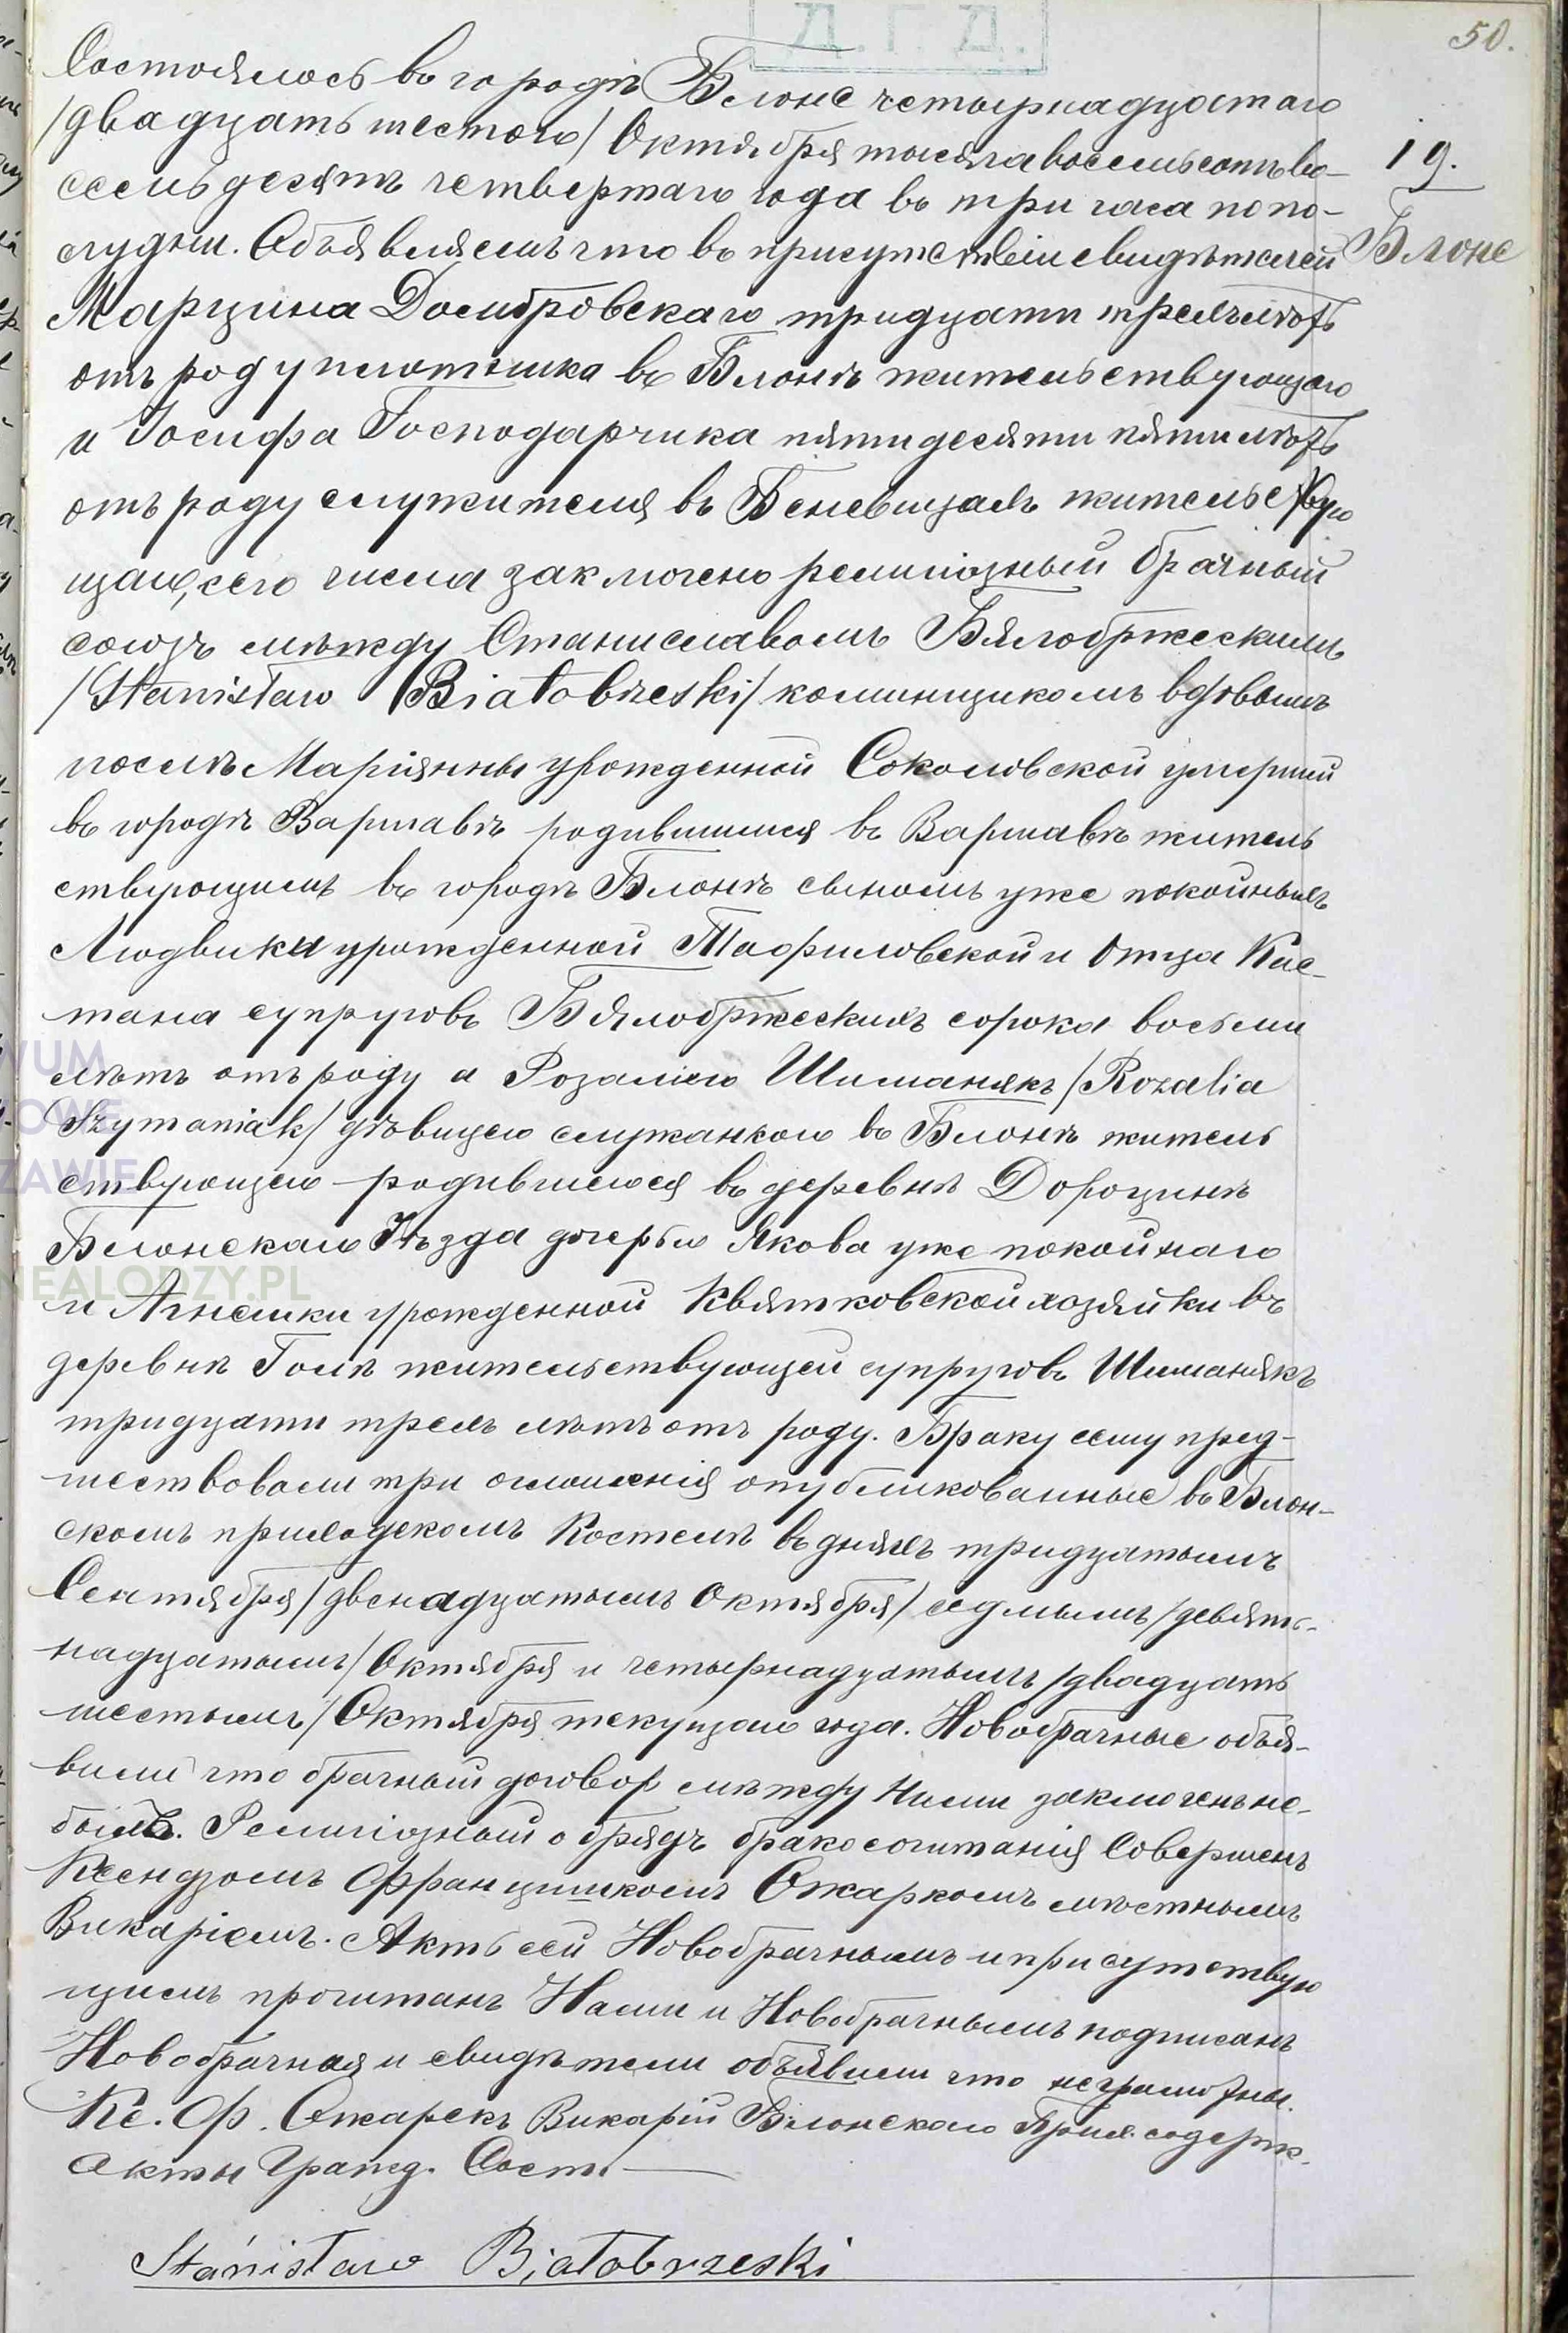 Д. Г. Д.
50.
Состоялось въ городѣ Блоне четырнадцатаго
/двадцать шестого/ Октября тысяча восемьсотъ во-
семьдесятъ четвертаго года въ три часа попо-
19.
Блоне
лудни. Объявляемъ что въ присутствіи свидѣтелей
Марцина Домбровскаго тридцати трехъ лѣтъ
отъ роду плотника въ Блонѣ жительствующаго
и Іосифа Господарчика пятидесяти пяти лѣтъ
отъ роду служителя въ Беневицахъ жительству
щаго, сего числа заключено религіозный брачный
союзъ между Станиславомъ Бялобржескимъ
/Stanisław Białobrzeski/ каминщикомъ вдовымъ
послѣ Маріянны урожденной Соколовской умершй
въ городѣ Варшавѣ родившимся въ Варшавѣ житель
ствующимъ въ городѣ Блонѣ сыномъ уже покойныхъ
Людвики урожденной Тафиловской и Отца Кае-
тана супруговъ Бялобржескихъ сорока восьми
лѣтъ отъ роду и Розаліею Шиманякъ /Rozalia
Szymaniak/ дѣвицею служанкою въ Блонѣ житель
ствующею родившеюся въ деревнѣ Дорошинѣ
Блонскаго Уѣзда дочерью Якова уже покойнаго
и Агнешки урожденной Квятковской хозяйки въ
деревнѣ Голѣ жительствующей супруговъ Шиманякъ
тридцати трехъ лѣтъ отъ роду. Браку сему пред-
шествовали три оглашенія опубликованные въ Блон-
скомъ приходскомъ Костелѣ въ дняхъ тридцатымъ
Сентября /двенадцатымъ Октября/ седмымъ /девят-
надцатымъ/ Октября и четырнадцатымъ /двадцать
шестымъ/ Октября текущаго года. Новобрачные объя-
вили что брачный договор между ними заключенъ не-
былъ. Религіозный обрядъ бракосочитанія совершенъ
Ксендзомъ Францишкомъ Ожаркомъ мѣстнымъ
Викаріемъ. Актъ сей Новобрачнымъ и присутствую
щимъ прочитанъ Нами и Новобрачнымъ подписанъ
Новобрачная и свидѣтели объявили что неграмотны.
Кс. Ф. Ожарекъ Викарій Блонскаго Прих. содерж.
Акты Гражд. Сост.
Stanisław Białobrzeski